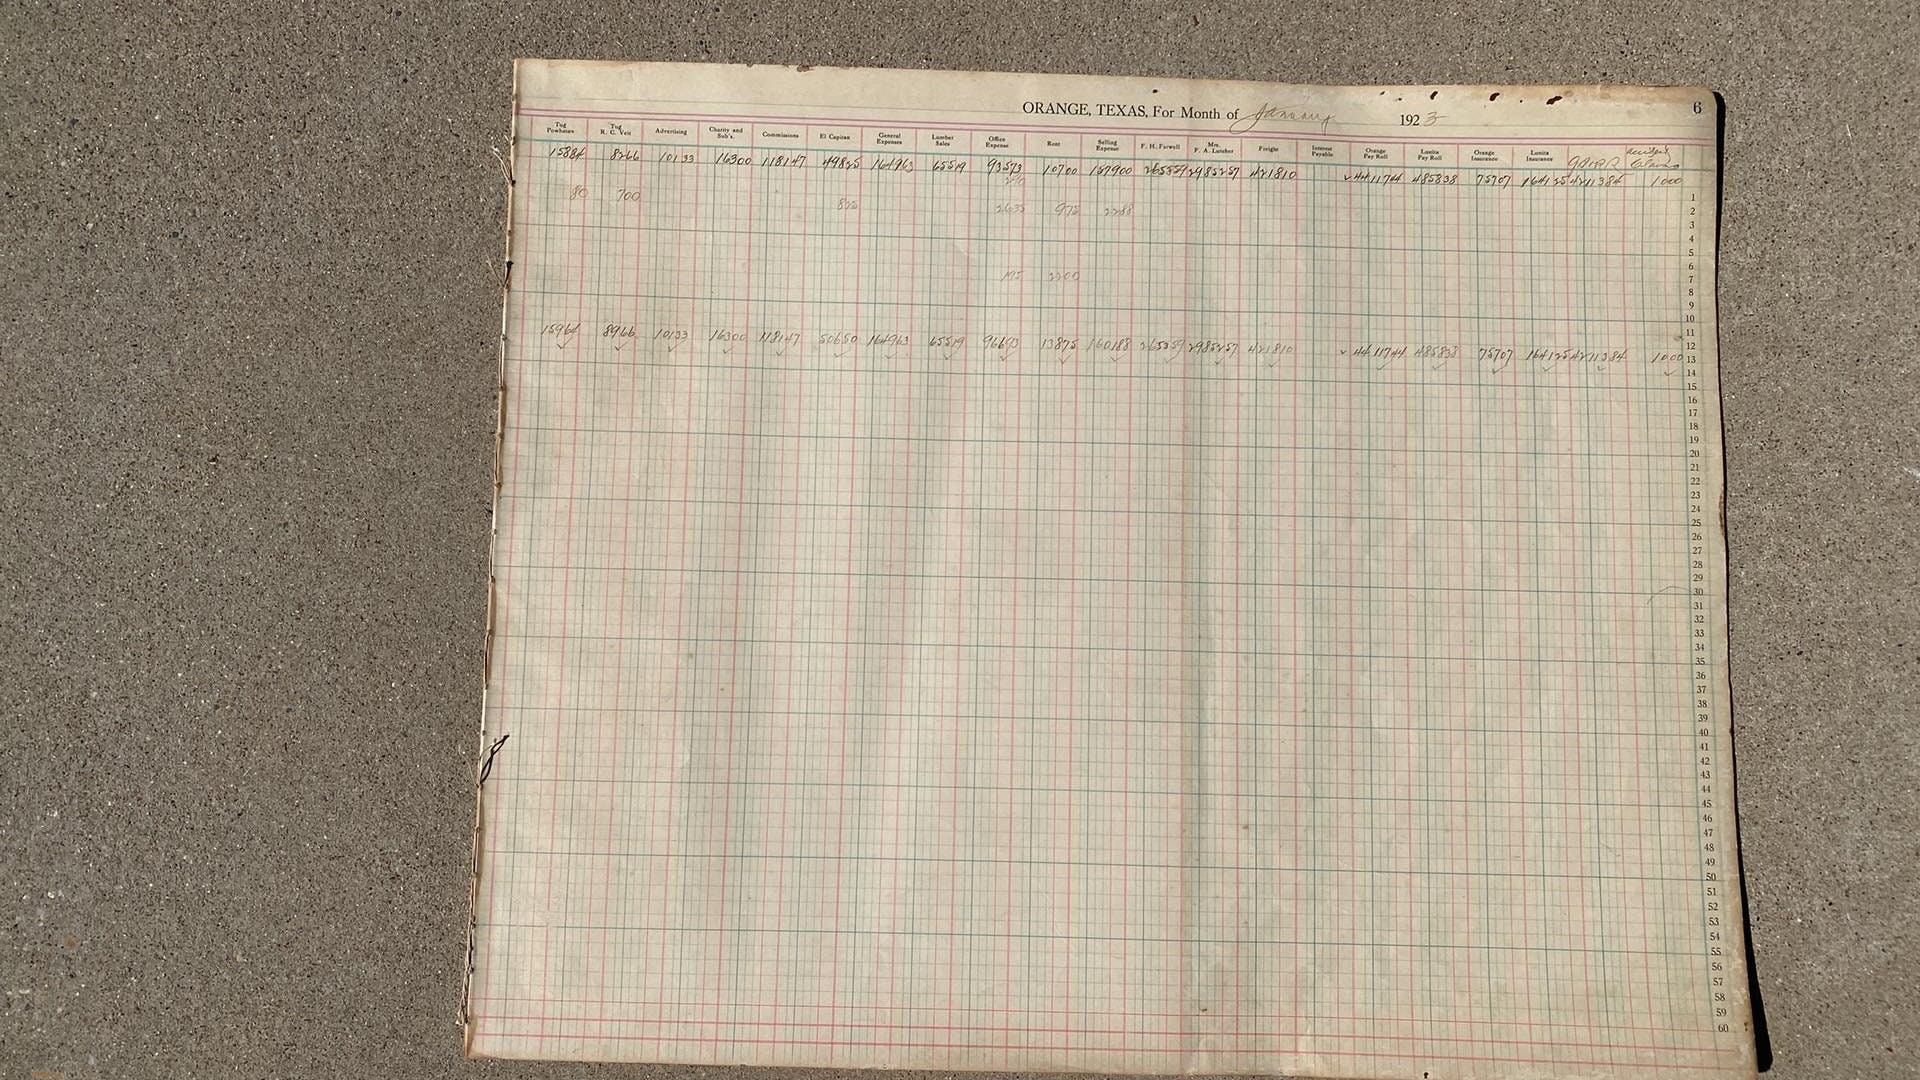 ORANGE, TEXAS, For Month of January 1923 6
Tug Powhatan Tug R. C. Veit Advertising Charity and Sub's. Commissions El Capitan General Expenses Lumber Sales Office Expense Rent Selling Expense F. H. Farwell Mrs. F. A. Lutcher Freight Interest Payable Orange Pay Roll Lunita Pay Roll Orange Insurance Lunita Insurance
15884 8266 10133 16300 118147 49825 164963 65519 93573 10700 157900 265359 2985257 421810 4411744 485838 75707 164125 4211384 1000
80 700 825 2635 975 2288
2200
15964 8966 10133 16300 118147 50650 164963 65519 96693 13875 160188 265359 2985257 421810 4411744 485838 75707 164125 4211384 1000
1
2
3
4
5
6
7
8
9
10
11
12
13
14
15
16
17
18
19
20
21
22
23
24
25
26
27
28
29
30
31
32
33
34
35
36
37
38
39
40
41
42
43
44
45
46
47
48
49
50
51
52
53
54
55
56
57
58
59
60